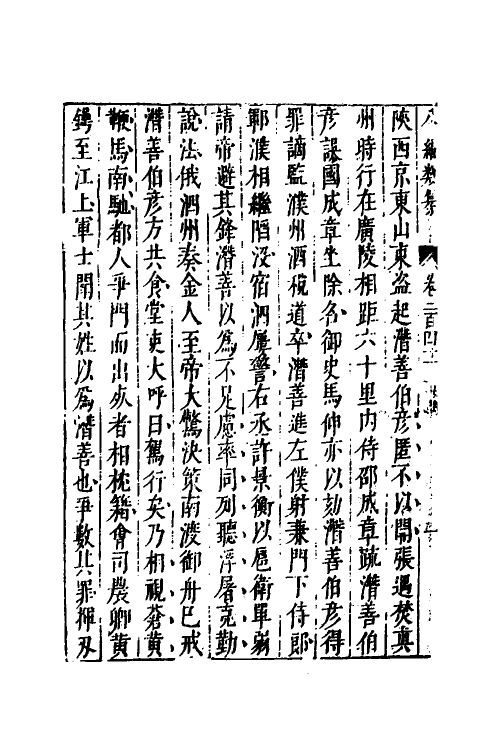 八編類纂 卷二百四十一
陝西京東山東盜起潛善伯彥匿不以聞張遇焚真
州時行在廣陵相距六十里内侍邵成章疏潛善伯
彥誤國成章坐除名御史馬伸亦以劾潛善伯彥得
罪謫監濮州酒稅道卒潛善進左僕射兼門下侍郎
鄆濮相繼陷沒宿泗屢警右丞許景衡以扈衛單弱
請帝避其鋒潛善以爲不足慮率同列聽浮屠克勤
說法俄泗州奏金人至帝大驚決策南渡御舟已戒
潛善伯彥方共食堂吏大呼曰駕行矣乃相視蒼黃
鞭馬南馳都人爭門而出死者相枕籍會司農卿黃
鍔至江上軍士聞其姓以爲潛善也爭數其罪揮刃